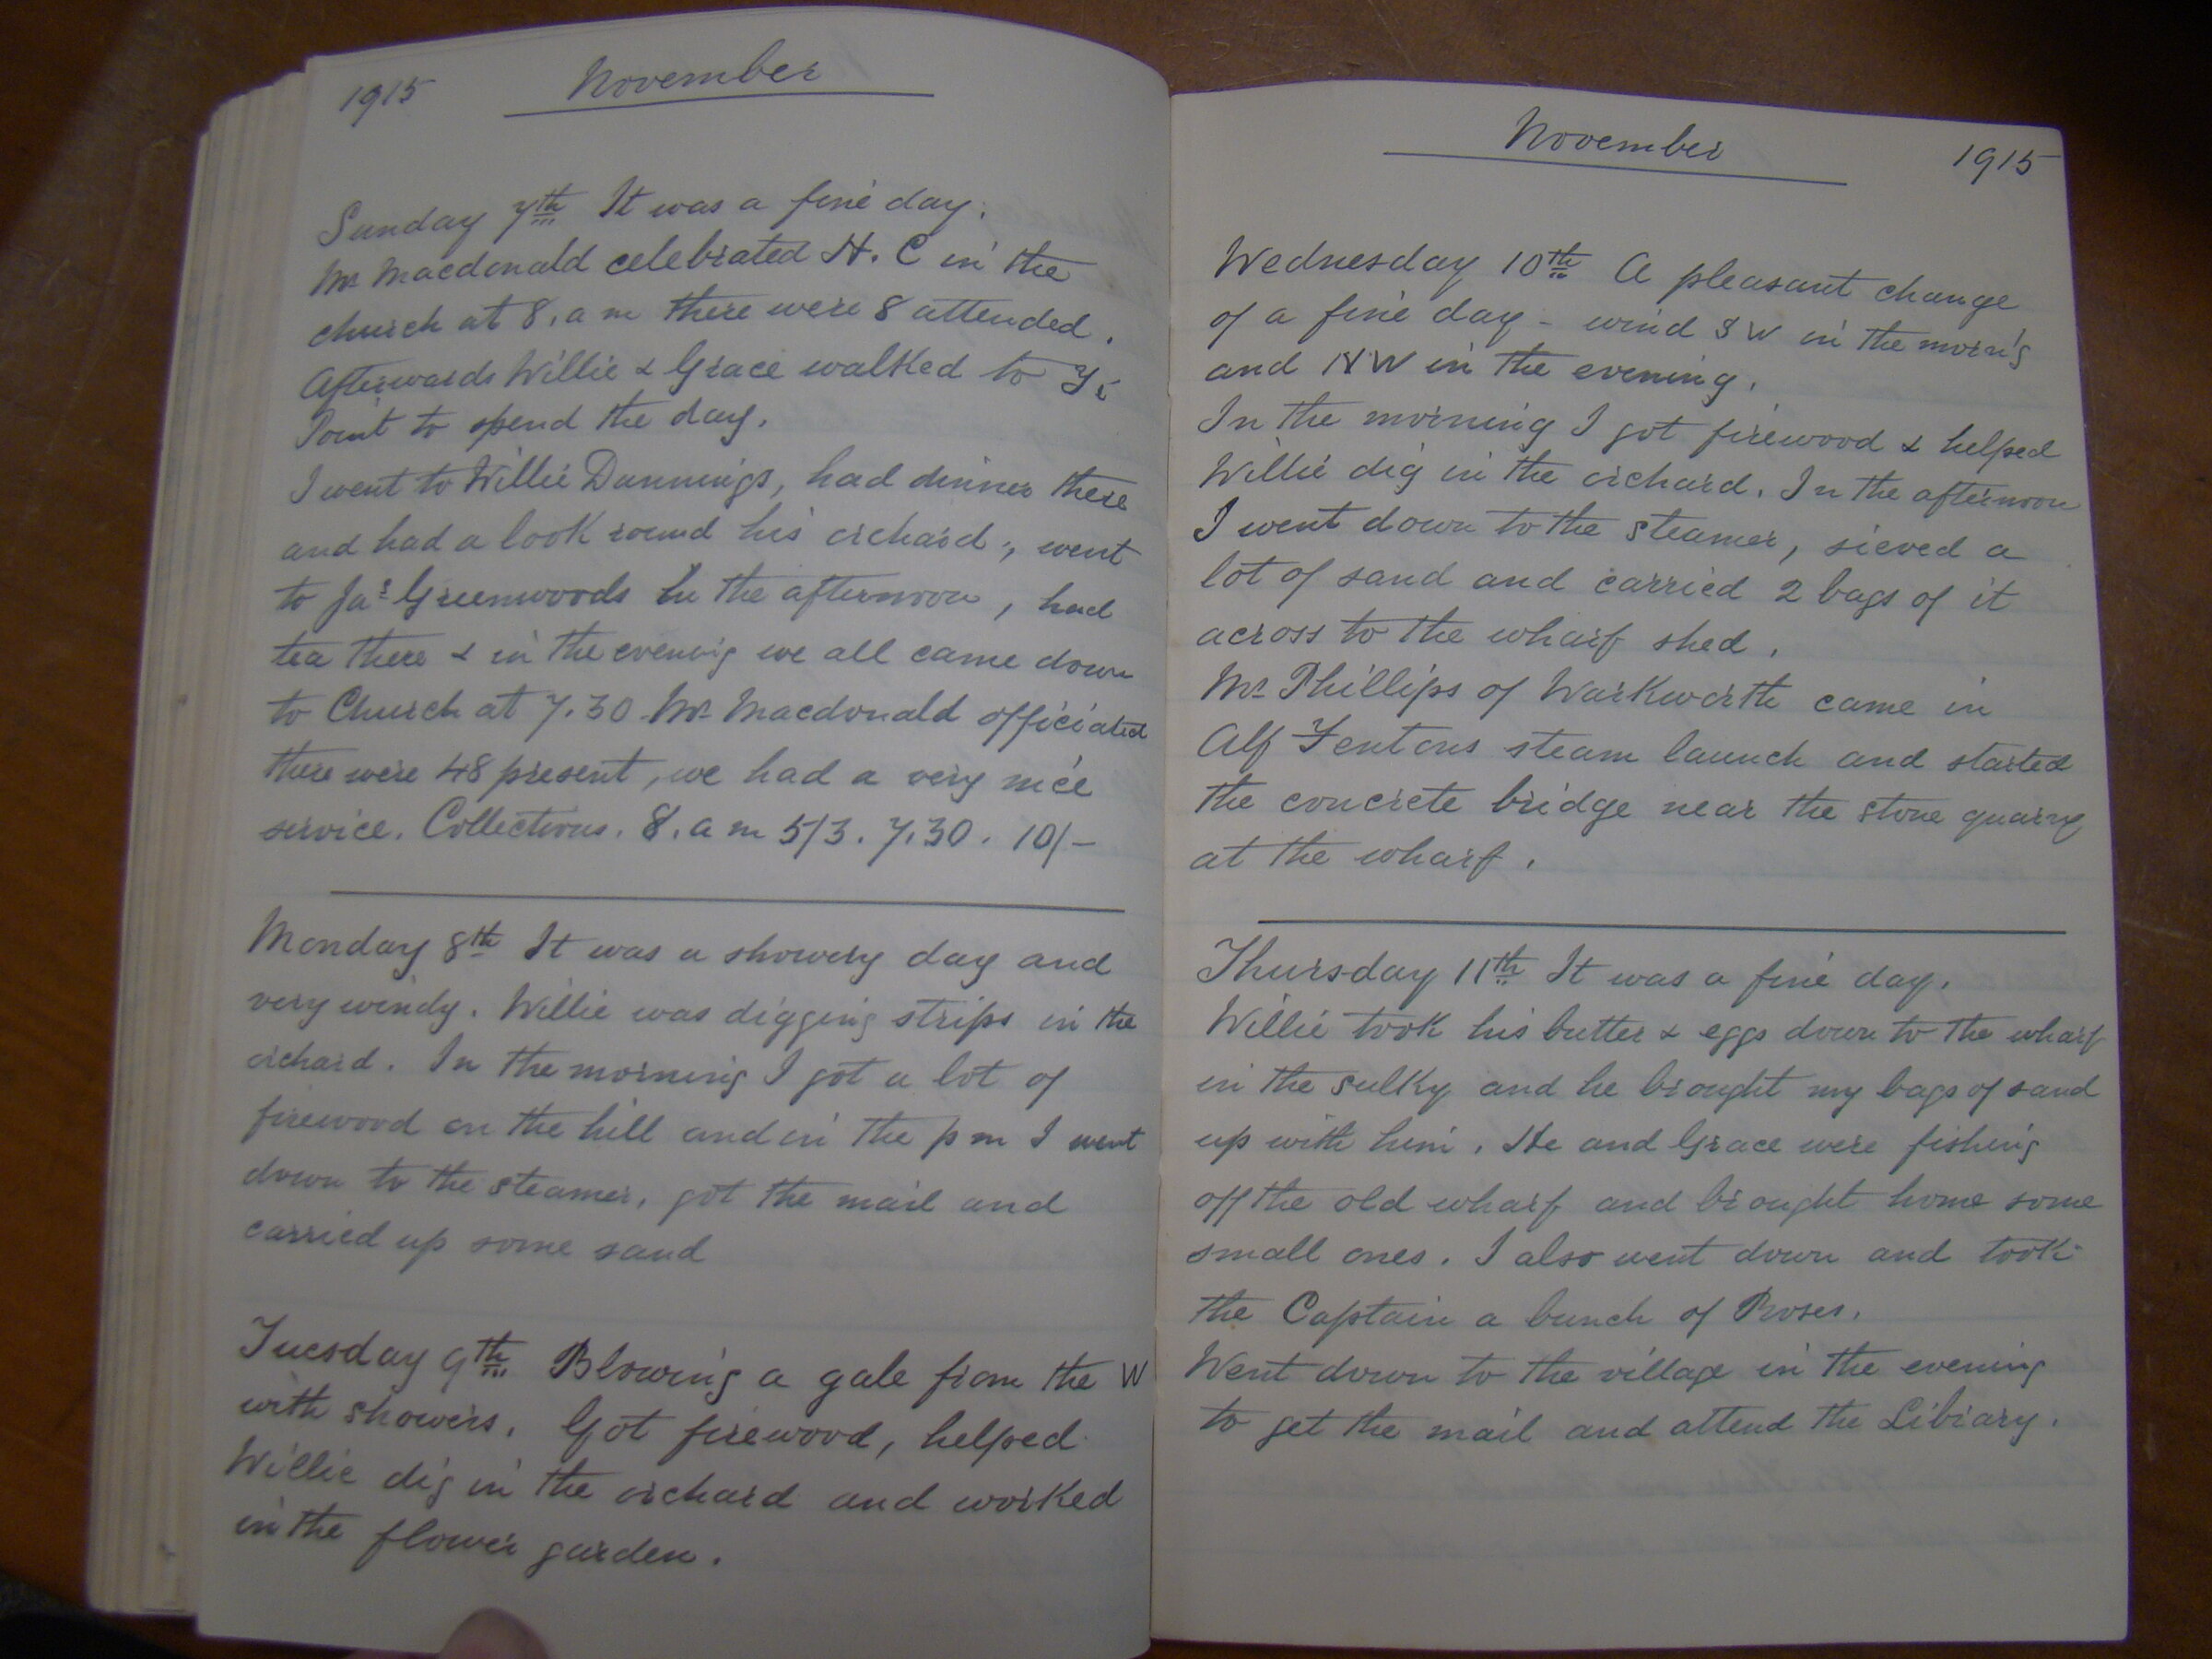 1915 November
Sunday 7th It was a fine day.
Mr Macdonald celebrated H. C in the
church at 8. a m there were 8 attended.
Afterwards Willie & Grace walked to
Point to spend the day.
I went to Willie Dunnings, had dinner there
and had a look round his orchard; went
to Jas Greenwoods in the afternoon, had
tea there & in the evening we all came down
to Church at 7.30 Mr Macdonald officiated
there were 48 present, we had a very nice
service. Collections. 8. a m 5/3. 7.30. 10/-
Monday 8th It was a showery day and
very windy. Willie was digging strips in the
orchard. In the morning I got a lot of
firewood on the hill and in the p m I went
down to the steamer, got the mail and
carried up some sand
Tuesday 9th Blowing a gale from the W
with showers. Got firewood, helped
Willie dig in the orchard and worked
in the flower garden.
November 1915
Wednesday 10th A pleasant change
of a fine day - wind SW in the morn'g
and NW in the evening.
In the morning I got firewood & helped
Willie dig in the orchard. In the afternoon
I went down to the steamer, sieved a
lot of sand and carried 2 bags of it
across to the wharf shed.
Mr Phillips of Warkworth came in
Alf Fentons steam launch and started
the concrete bridge near the stone quarry
at the wharf.
Thursday 11th It was a fine day.
Willie took his butter & eggs down to the wharf
in the sulky and he brought my bags of sand
up with him. He and Grace were fishing
off the old wharf and brought home some
small ones. I also went down and took
the Captain a bunch of Roses.
Went down to the village in the evening
to get the mail and attend the Library.